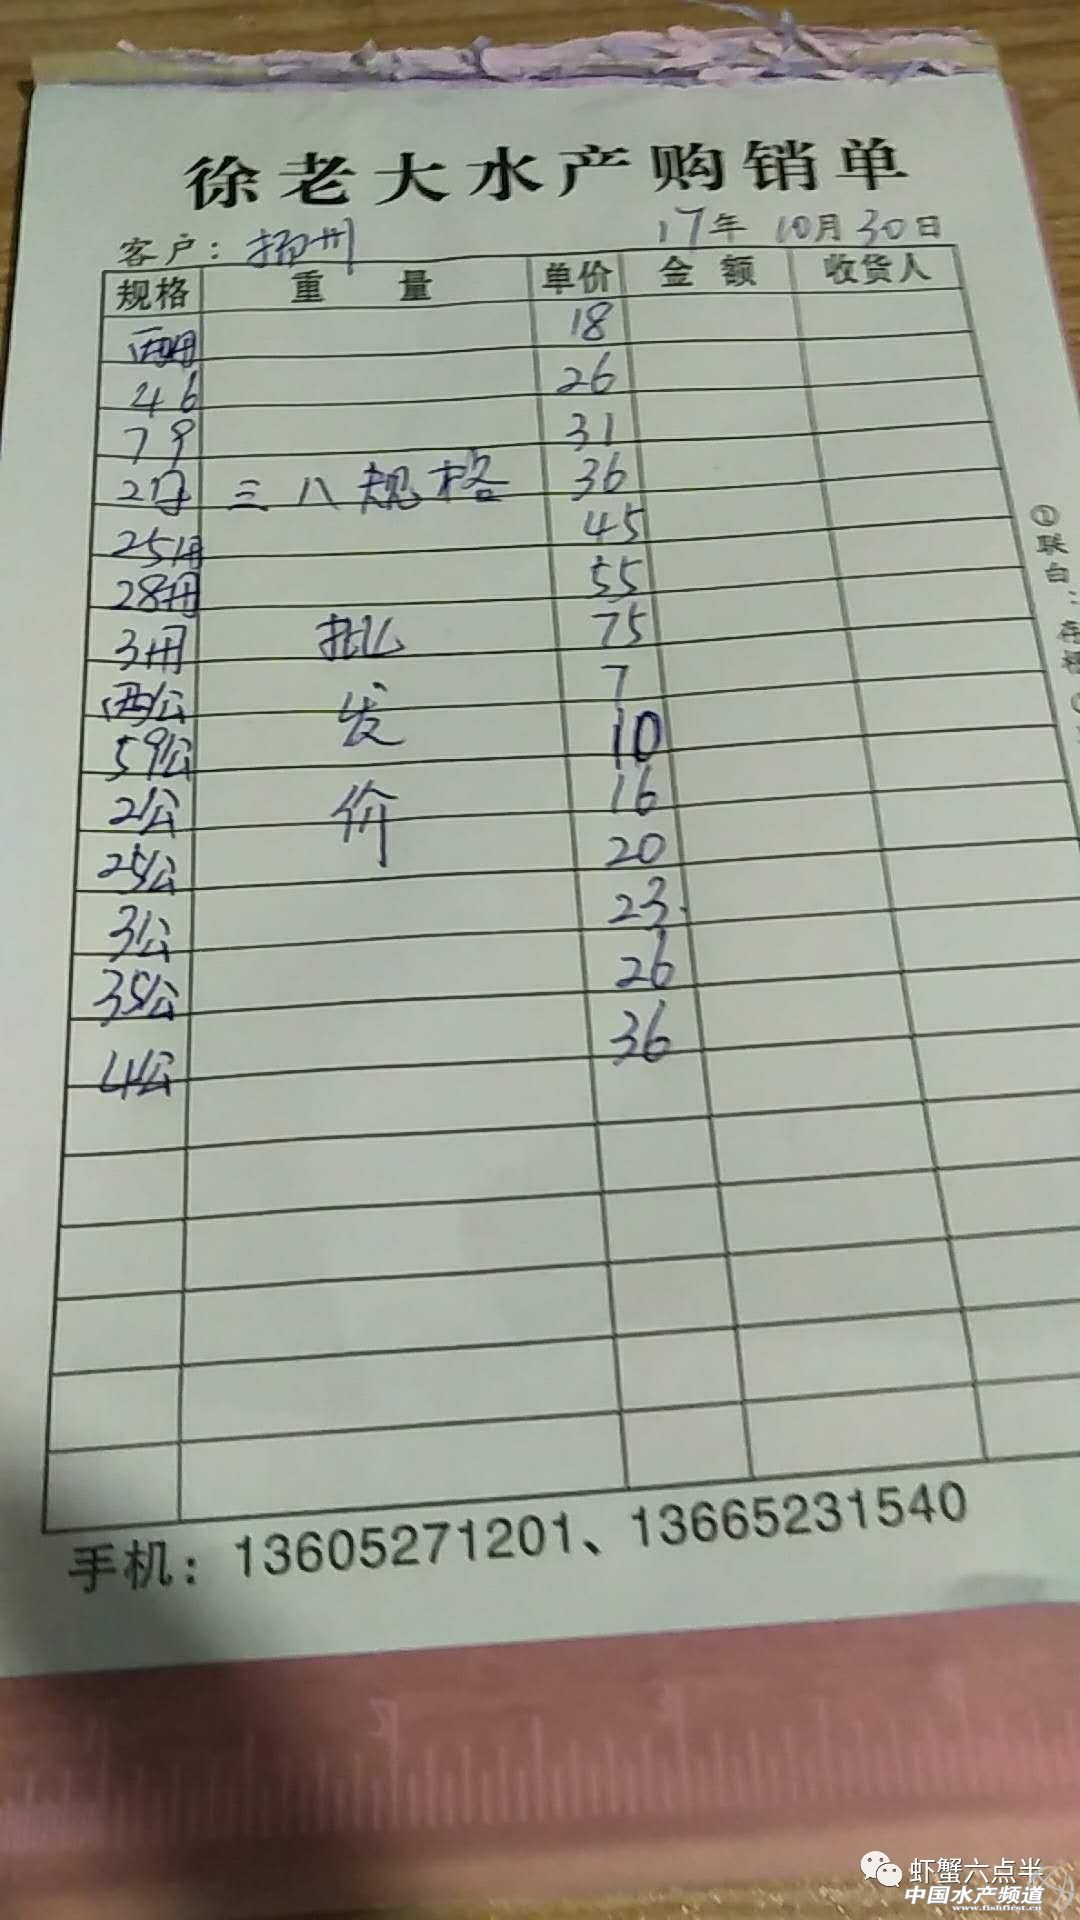 徐老大水产购销单
客户：扬州 17年10月30日
规格 重量 单价 金额 收货人
两母 18
46 26
79 31
2母 三八规格 36
25母 45
28母 55
3母 批 75
两公 发 7
59公 10
2公 价 16
25公 20
3公 23
35公 26
4公 36
手机：13605271201、13665231540
①
联
白
：
存
虾蟹六点半
中国水产频道
www.fishfirst.cn